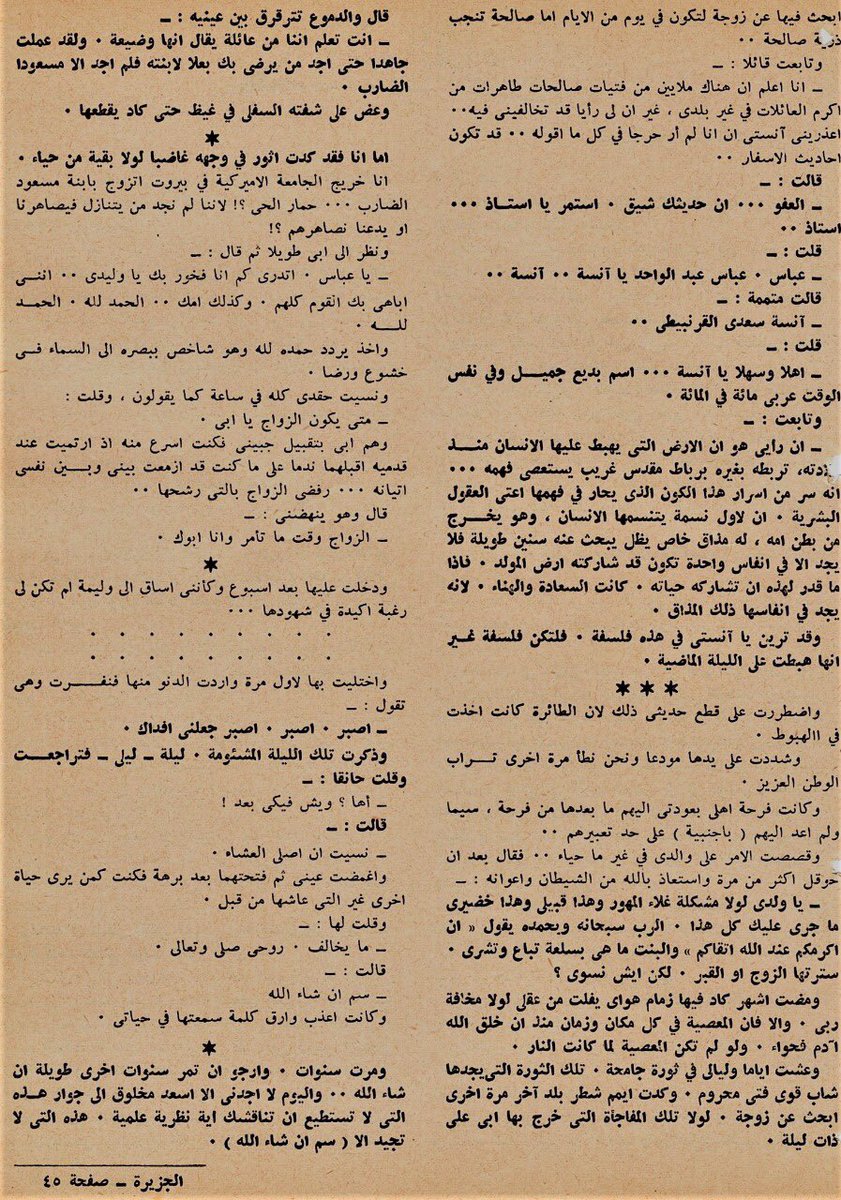 ابحث فيها عن زوجة لتكون في يوم من الايام اما صالحة تنجب
ذرية صالحة ٠٠
وتابعت قائلا : ــ
ــ انا اعلم ان هناك ملايين من فتيات صالحات طاهرات من
اكرم العائلات في غير بلدى ، غير ان لى رأيا قد تخالفينى فيه٠٠
اعذرينى آنستى ان انا لم أر حرجا في كل ما اقوله ٠٠ قد تكون
احاديث الاسفار ٠٠
قالت : ــ
ــ العفو ٠٠٠ ان حديثك شيق ٠ استمر يا استــاذ ٠٠٠
استاذ ٠٠
قلت : ــ
ــ عباس ٠ عباس عبد الواحد يا آنسة ٠٠ آنسة ٠٠
قالت متممة : ــ
ــ آنسة سعدى القرنبيطى ٠٠
قلت : ــ
ــ اهلا وسهلا يا آنسة ٠٠٠ اسم بديع جميــل وفي نفس
الوقت عربى مائة في المائة ٠
وتابعت : ــ
ــ ان رايى هو ان الارض التى يهبط عليها الانسان منــذ
ولادته، تربطه بغيره برباط مقدس غريب يستعصى فهمه ٠٠٠
انه سر من اسرار هذا الكون الذى يحار في فهمها اعتى العقول
البشرية ٠ ان لاول نسمة يتنسمها الانسان ، وهو يخــرج
من بطن امه ، له مذاق خاص يظل يبحث عنه سنين طويلة فلا
يجد الا في انفاس واحدة تكون قد شاركته ارض المولد ٠ فاذا
ما قدر لهذه ان تشاركه حياته ٠ كانت السعادة والهناء ٠ لانه
يجد في انفاسها ذلك المذاق ٠
وقد ترين يا آنستى في هذه فلسفة ٠ فلتكن فلسفة غــير
انها هبطت على الليلة الماضية ٠
★ ★ ★
واضطررت على قطع حديثى ذلك لان الطائرة كانت اخذت
في االهبوط ٠
وشددت على يدها مودعا ونحن نطأ مرة اخرى تــراب
الوطن العزيز ٠
وكانت فرحة اهلى بعودتى اليهم ما بعدها من فرحة ، سيما
ولم اعد اليهم ( باجنبية ) على حد تعبيرهم ٠٠
وقصصت الامر على والدى في غير ما حياء ٠٠ فقال بعد ان
حوقل اكثر من مرة واستعاذ بالله من الشيطان واعوانه : ــ
ــ يا ولدى لولا مشكلة غلاء المهور وهذا قبيلى وهذا خضيرى
ما جرى عليك كل هذا ٠ الرب سبحانه وبحمده يقول « ان
اكرمكم عند الله اتقاكم » والبنت ما هى بسلعة تباع وتشرى ٠
سترتها الزوج او القبر ٠ لكن ايش نسوى ؟
ومضت اشهر كاد فيها زمام هواى يفلت من عقلى لولا مخافة
ربى ٠ والا فان المعصية في كل مكان وزمان منذ ان خلق الله
آدم فحواء ٠ ولو لم تكن المعصية لما كانت النار ٠
وعشت اياما وليالى في ثورة جامحة ٠ تلك الثورة التى يجدها
شاب قوى فتى محروم ٠ وكدت ايمم شطر بلد آخر مرة اخرى
ابحث عن زوجة ٠ لولا تلك المفاجأة التى خرج بها ابى على
ذات ليلة ٠
قال والدموع تترقرق بين عينيه : ــ
ــ انت تعلم اننا من عائلة يقال انها وضيعة ٠ ولقد عملت
جاهدا حتى اجد من يرضى بك بعلا لابنته فلم اجد الا مسعودا
الضارب ٠
وعض على شفته السفلى في غيظ حتى كاد يقطعها ٠
★
اما انا فقد كدت اثور في وجهه غاضبا لولا بقية من حياء ٠
انا خريج الجامعة الاميركية في بيروت اتزوج بابنة مسعود
الضارب ٠٠٠ حمار الحى ؟! لاننا لم نجد من يتنازل فيصاهرنا
او يدعنا نصاهرهم ؟!
ونظر الى ابى طويلا ثم قال : ــ
ــ يا عباس ٠ اتدرى كم انا فخور بك يا وليدى ٠٠ اننــى
اباهى بك القوم كلهم ٠ وكذلك امك ٠٠ الحمد لله ٠ الحمــد
للــــه ٠
واخذ يردد حمده لله وهو شاخص ببصره الى السماء فــى
خشوع ورضا ٠
ونسيت حقدى كله في ساعة كما يقولون ، وقلت :
ــ متى يكون الزواج يا ابى ٠
وهم ابى بتقبيل جبينى فكنت اسرع منه اذ ارتميت عند
قدميه اقبلهما ندما على ما كنت قد ازمعت بينى وبــين نفسى
اتيانه ٠٠٠ رفضى الزواج بالتى رشحها ٠٠
قال وهو ينهضنى : ــ
ــ الزواج وقت ما تأمر وانا ابوك ٠
★
ودخلت عليها بعد اسبوع وكأننى اساق الى وليمة لم تكن لى
رغبة اكيدة في شهودها ٠٠٠
٠ ٠ ٠ ٠ ٠ ٠ ٠ ٠ ٠
٠ ٠ ٠ ٠ ٠ ٠ ٠ ٠ ٠
واختليت بها لاول مرة واردت الدنو منها فنفــرت وهى
تقول : ــ
ــ اصبر ٠ اصبر ٠ اصبر جعلنى افداك ٠
وذكرت تلك الليلة المشئومة ٠ ليلة ــ ليلى ــ فتراجعــت
وقلت حانقا : ــ
ــ أها ؟ ويش فيكى بعد !
قالت : ــ
ــ نسيت ان اصلى العشاء ٠
واغمضت عينى ثم فتحتهما بعد برهة فكنت كمن يرى حياة
اخرى غير التى عاشها من قبل ٠
وقلت لها : ــ
ــ ما يخالف ٠ روحى صلى وتعالى ٠
قالت : ــ
ــ سم ان شاء الله
وكانت اعذب وارق كلمة سمعتها في حياتى ٠
★
ومرت سنوات ٠ وارجو ان تمر سنوات اخرى طويلة ان
شاء الله ٠٠ واليوم لا اجدنى الا اسعد مخلوق الى جوار هــذه
التى لا تستطيع ان تناقشك اية نظرية علمية ٠ هذه التى لا
تجيد الا ( سم ان شاء الله ) ٠
الجزيرة ــ صفحة ٤٥